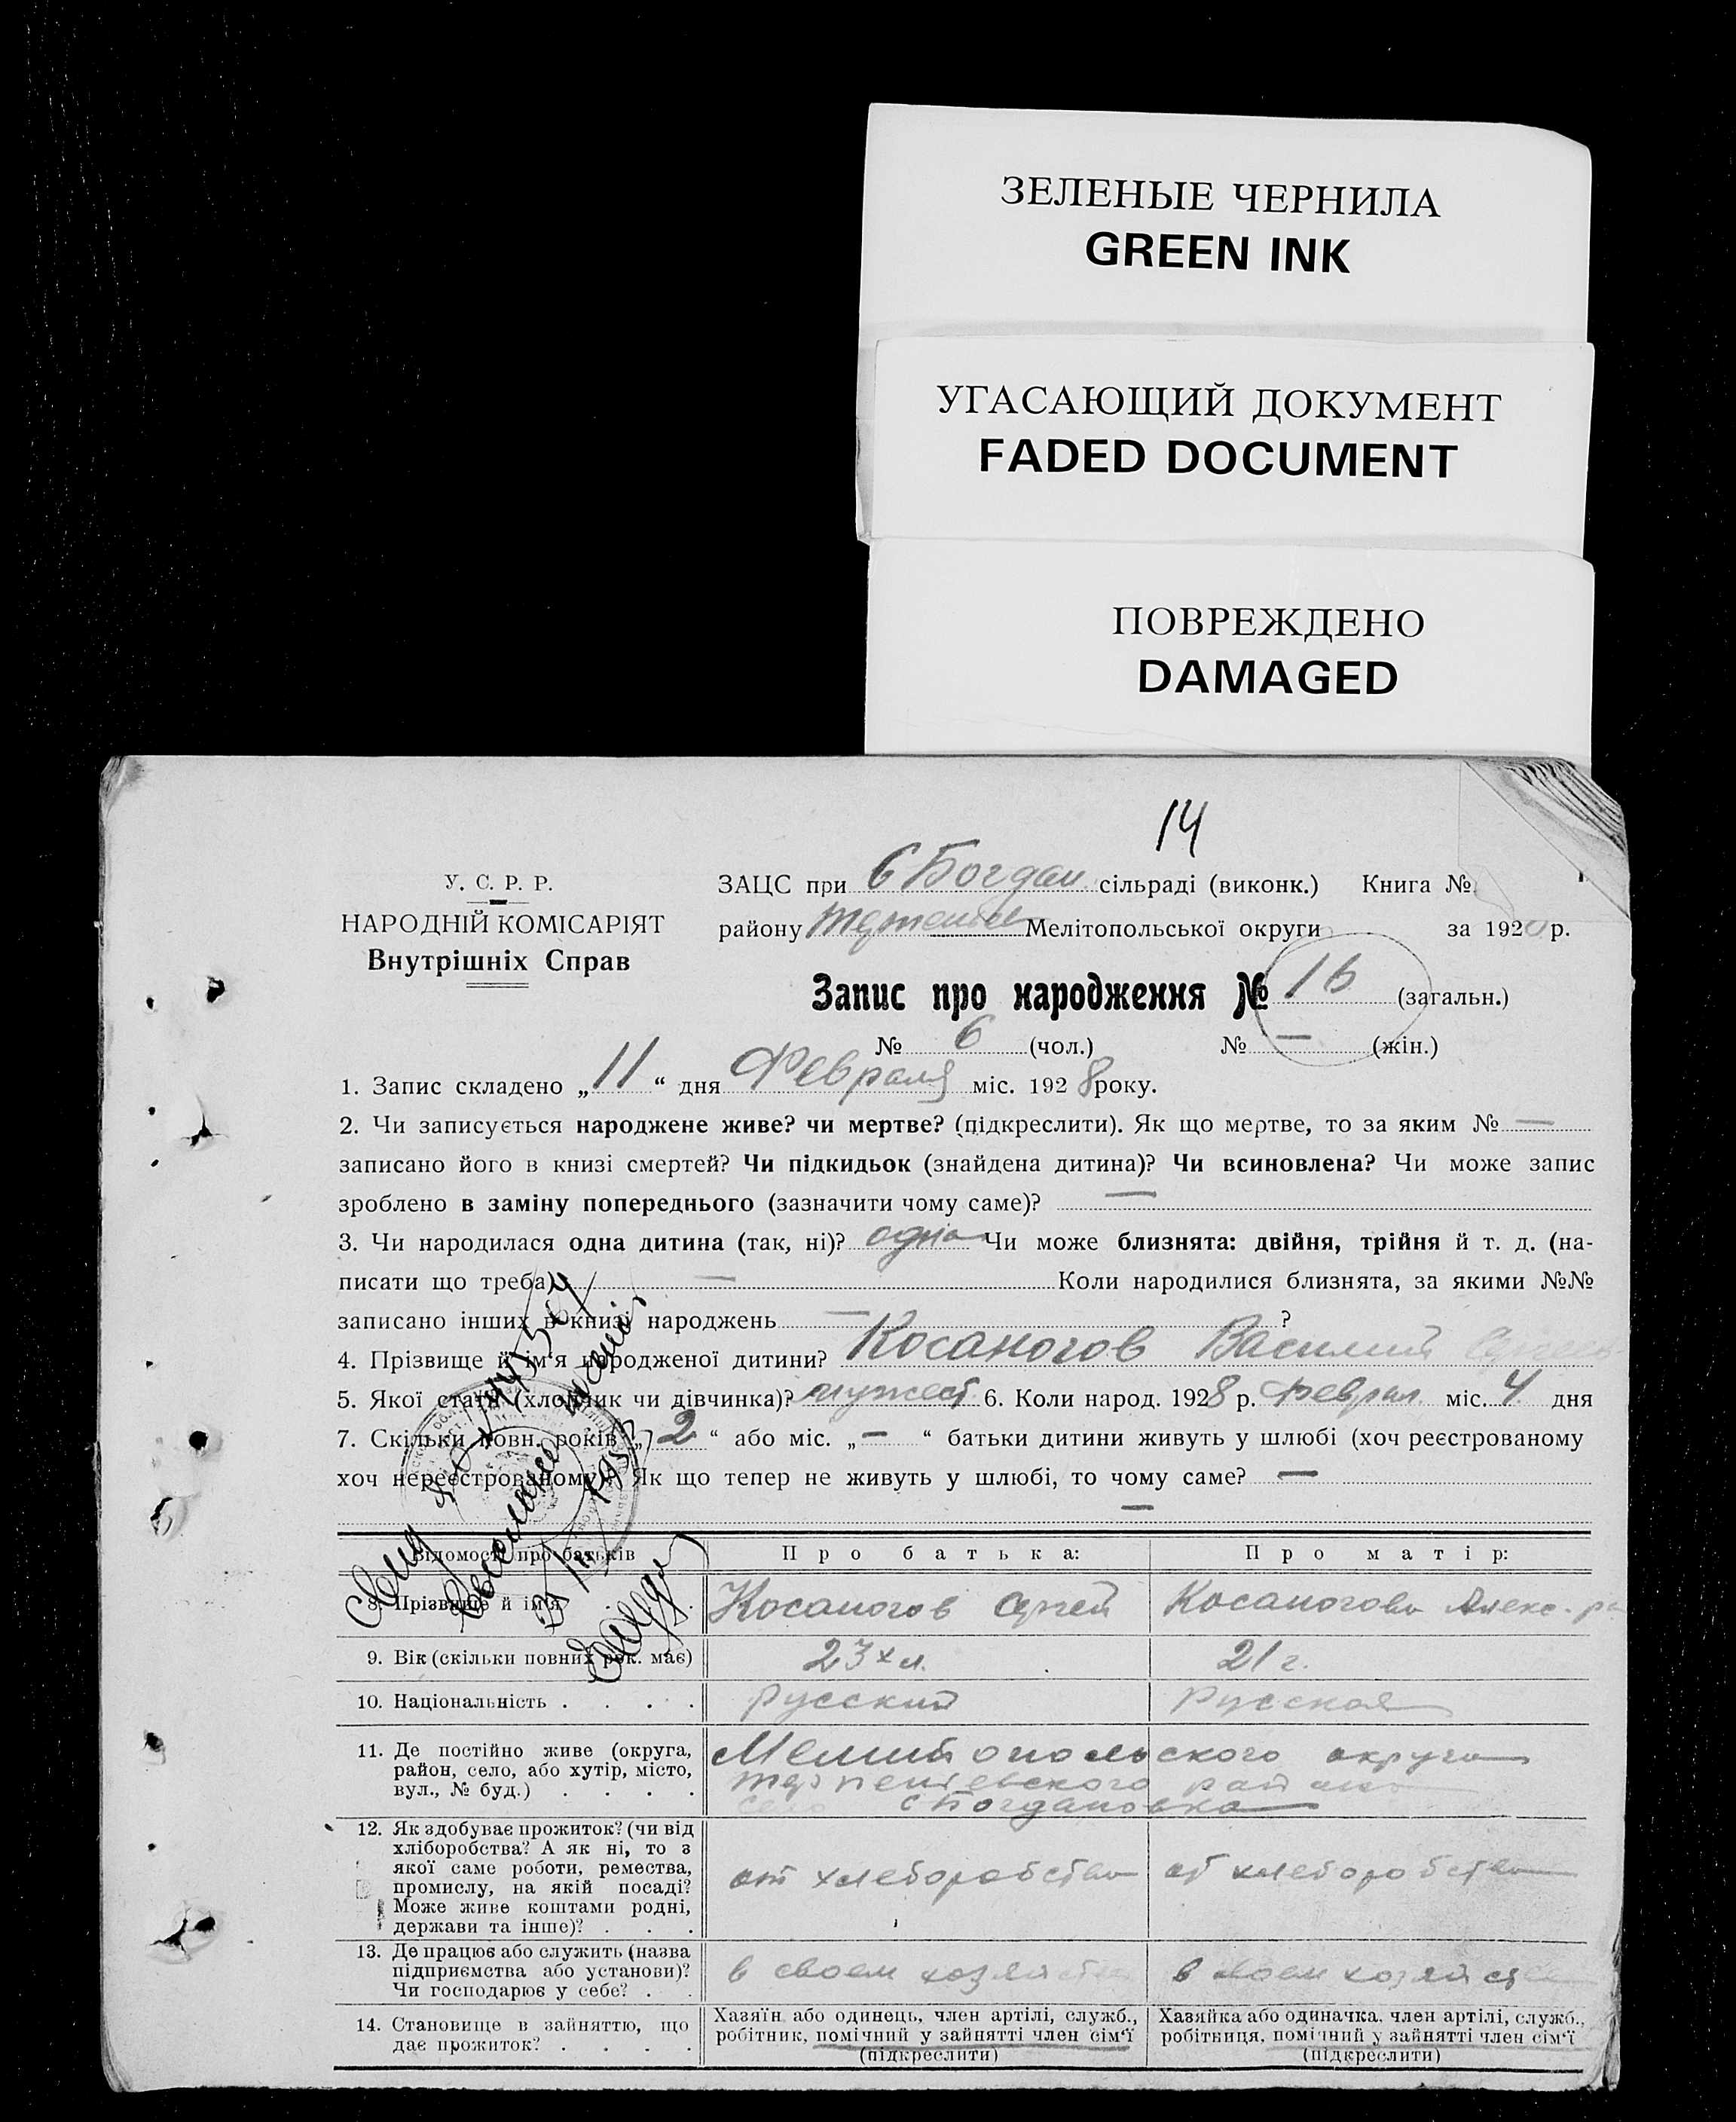 ЗЕЛЕНЫЕ ЧЕРНИЛА
GREEN INK
УГАСАЮЩИЙ ДОКУМЕНТ
FADED DOCUMENT
ПОВРЕЖДЕНО
DAMAGED
14
У. С. Р. Р.
НАРОДНІЙ КОМІСАРІЯТ
Внутрішніх Справ
ЗАЦС при Богдан сільраді (виконк.) Книга №
району Мелітопольської округи за 192 р.
Запис про народження № 16 (загальн.)
№ 6 (чол.) № — (жін.)
1. Запис складено „ 11 “ дня Февраля міс. 1928 року.
2. Чи записується народжене живе? чи мертве? (підкреслити). Як що мертве, то за яким № —
записано його в книзі смертей? Чи підкидьок (знайдена дитина)? Чи всиновлена? Чи може запис
зроблено в заміну попереднього (зазначити чому саме)? —
3. Чи народилася одна дитина (так, ні)? одна Чи може близнята: двійня, трійня й т. д. (на-
писати що треба) — Коли народилися близнята, за якими №№
записано інших в книзі народжень — ?
4. Прізвище й ім‘я народженої дитини? Косаногов Василий
5. Якої статі (хлопчик чи дівчинка)? мужест. 6. Коли народ. 1928 р. Феврал. міс. 4 дня
7. Скільки повн. років „ 2 “ або міс. „ — “ батьки дитини живуть у шлюбі (хоч реєстрованому
хоч нереєстрованому)? Як що тепер не живуть у шлюбі, то чому саме? —
—
Відомості про батьків Про батька: Про матір:
8. Прізвище й ім‘я . . . Косаногов Сергей Косаногова Алекс-ра
9. Вік (скільки повних рок. має) 23х л. 21 г.
10. Національність . . . . русский Русская
11. Де постійно живе (округа,
район, село, або хутір, місто,
вул., № буд.) . . . .
Мелитопольского округа
терпениевского района
село Богдановка
12. Як здобуває прожиток? (чи від
хліборобства? А як ні, то з
якої саме роботи, ремества,
промислу, на якій посаді?
Може живе коштами родні,
держави та інше)? . . .
от хлеборобства от хлеборобства
13. Де працює або служить (назва
підприємства або установи)?
Чи господарює у себе? . .
в своем хозяйстве в своем хозяйстве
14. Становище в зайняттю, що
дає прожиток? . . . .
Хазяїн або одинець, член артілі, служб.,
робітник, помічний у зайнятті член сім‘ї
(підкреслити)
Хазяйка або одиначка, член артілі, служб.,
робітниця, помічний у зайнятті член сім‘ї
(підкреслити)